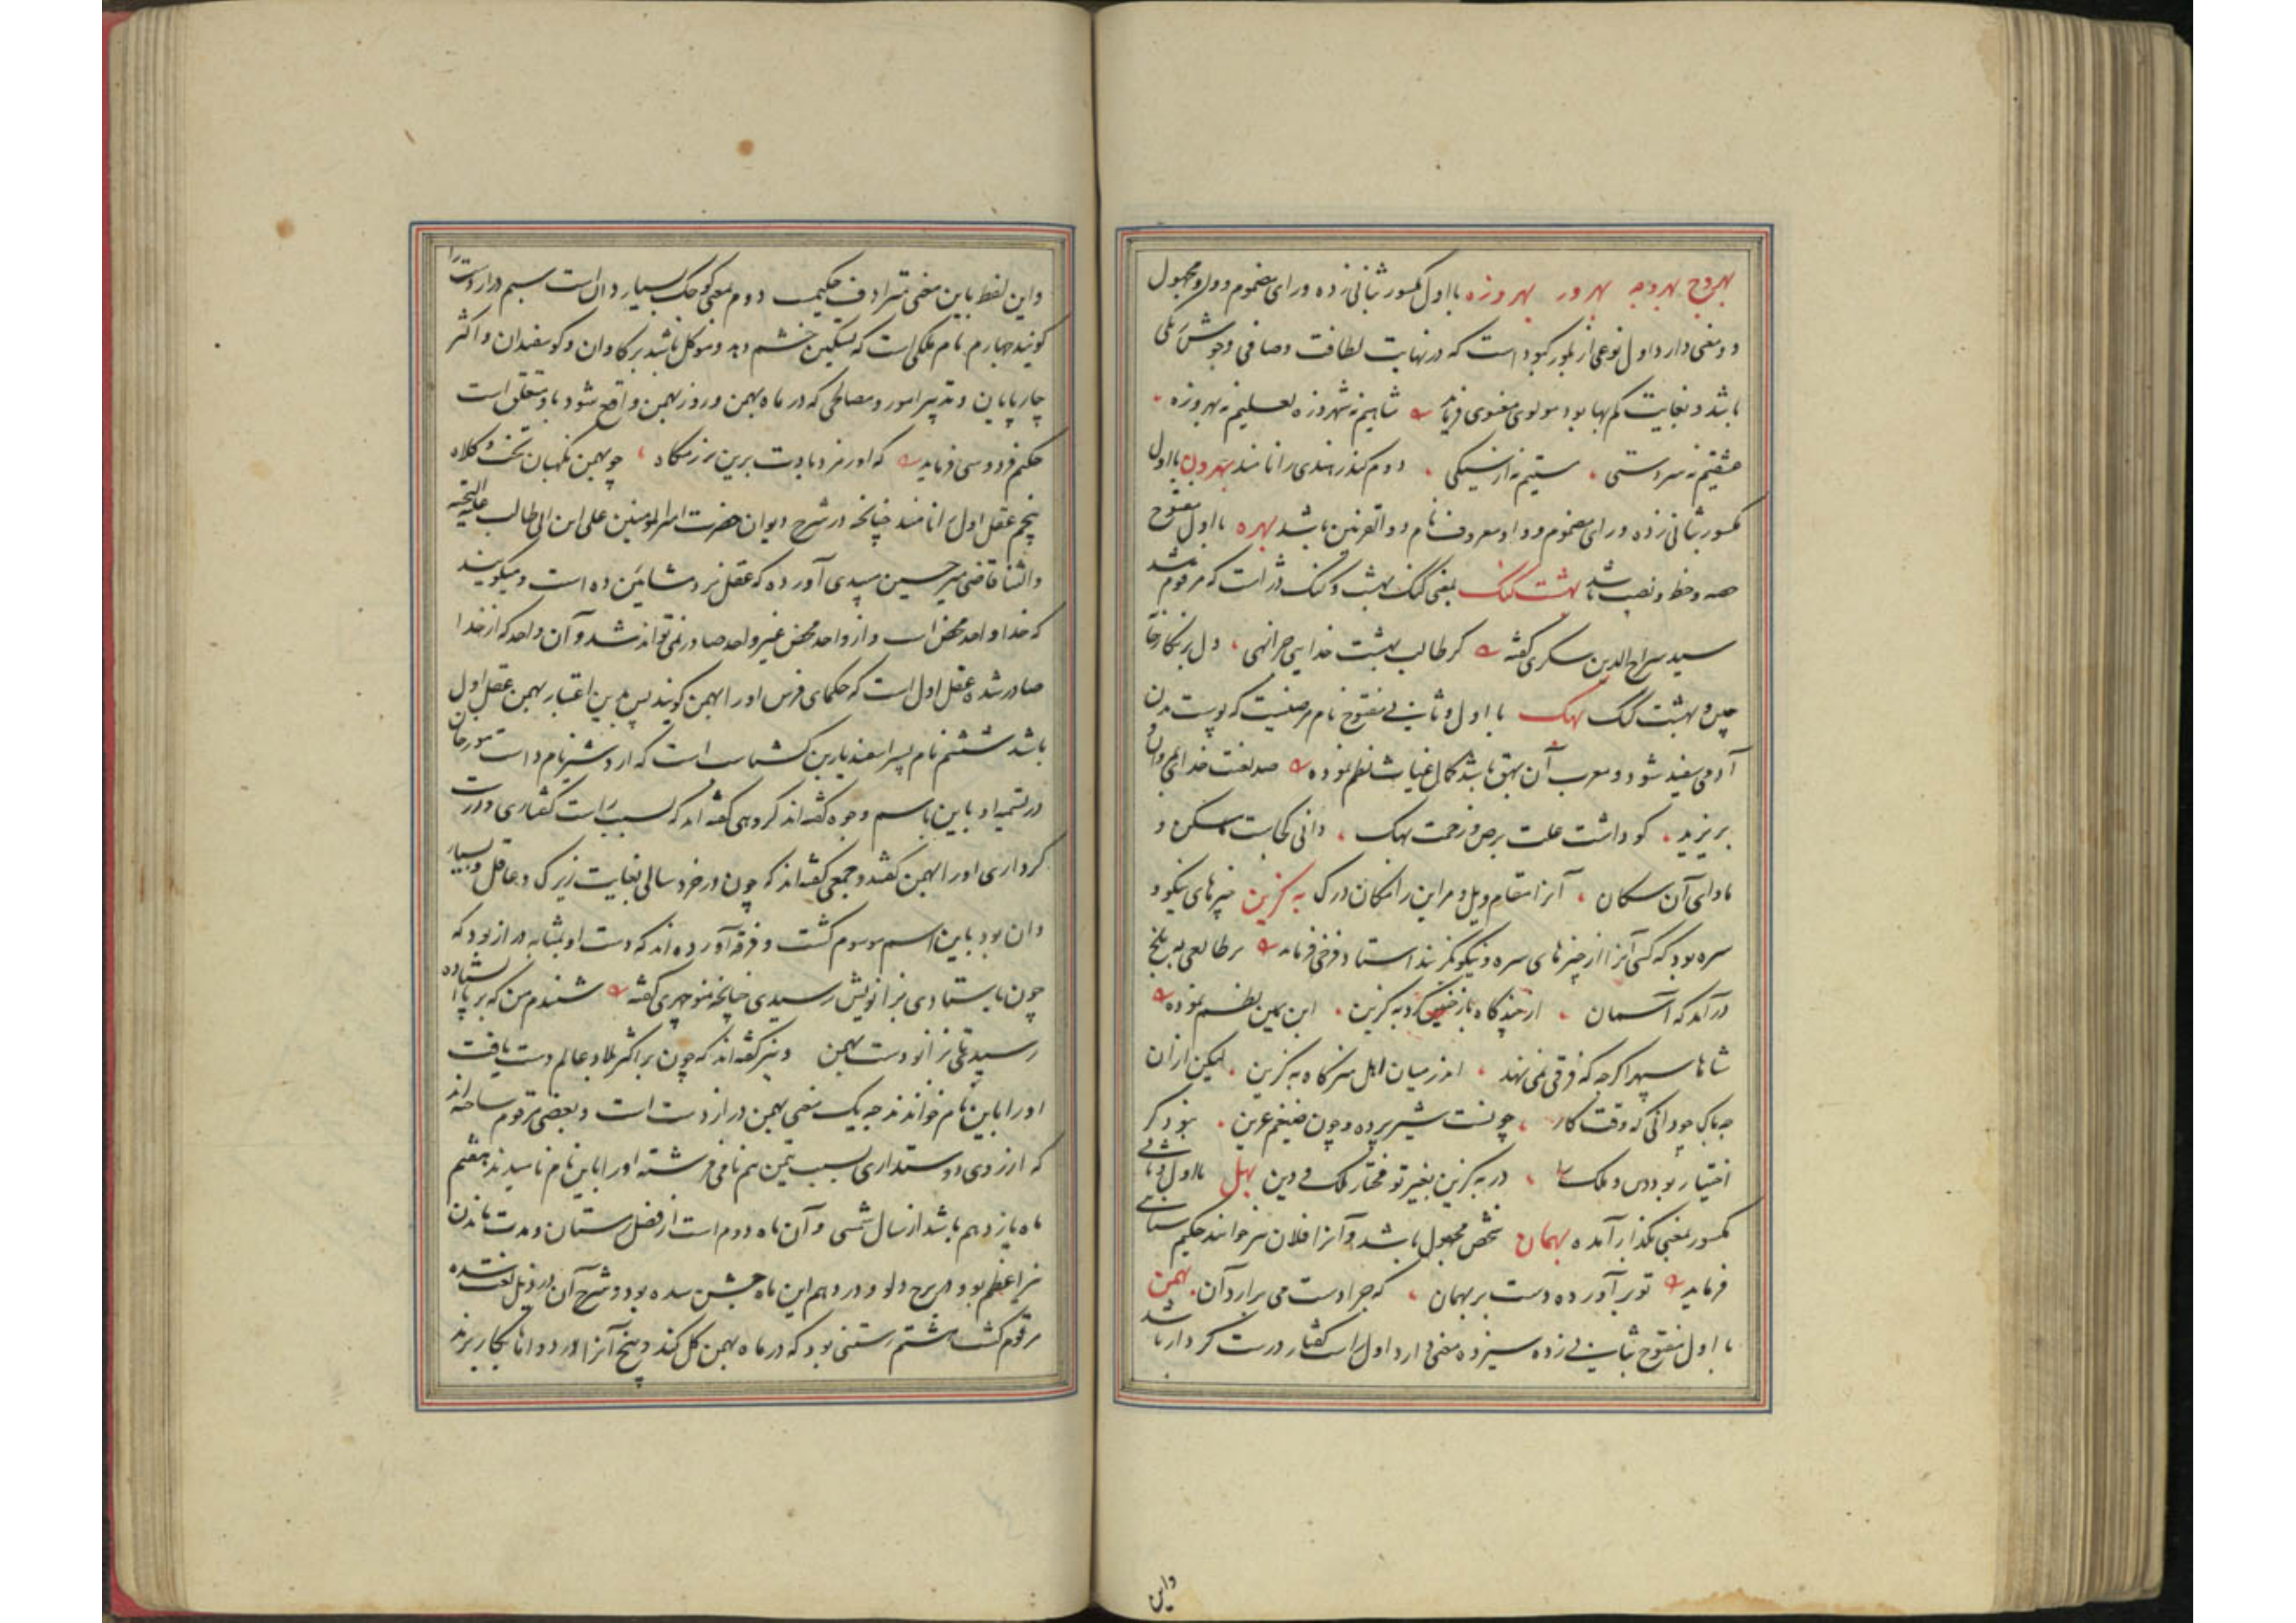 بهروج بهروجه بهرور بهروزه با اول مکسور بثانی زده و رای مضموم و واو مجهول
دو معنی دارد اول نوعی از بلور کبود است که در نهایت لطافت و صافی و خوش رنگی
باشد و بغایت کم بها بود مولوی معنوی فرماید شاهیم نه شهروزه لعلیم نه بهروزه
عشقیم نه سردستی مستیم نه از سیکی دوم کندر هندی را نامند بهرون با اول
مکسور بثانی زده و رای مضموم و واو معروف نام ذوالقرنین باشد بهره با اول مفتوح
حصه و حظ و نصیب باشد بهشت گنگ بمعنی گنگ بهشت و گنگ دژ است که مرقوم شد
سید سراج الدین سکزی گفته گر طالب بهشت خدایی چرا نهی دل بر نگارخانه
چین و بهشت گنگ بهک با اول و ثانی مفتوح نام مرضیست که پوست بدن
آدمی سفید شود و معرب آن بهق باشد کمال غیاث نظم نموده صد لعنت خدای بر وان
بر یزید کو داشت علت برص و زحمت بهک دانی کجاست مسکن و
ماوای آن سگان آنرا مقام ویل و مر این را مکان درک به گزین چیزهای نیکو و
سره بود که کسی آنرا از چیزهای سره و نیکو گزیند استاد فرخی فرماید بر طالعی به بلخ
درآمد که آسمان از چند گاه باز گرد به گزین ابن یمین نظم نموده
شاها سپهر اگر چه که فرقی نمی نهد اندر میان اهل هنر گاه به گزین لیکن از آن
چه باک چو دانی که وقت کار چو نست شیر پرده و چون ضیغم عرین نبود کر
اختیار بود دس و ملک را در به گزین بغیر تو مختار ملک و دین بهل با اول و ثانی
مکسور بمعنی بگذار آمده بهمان شخص مجهول باشد و آنرا فلان نیز خوانند حکیم سنایی
فرماید تو بر آورده دست بر بهمان که چرا دست می برآرد آن بهمن
با اول مفتوح بثانی زده سیزده معنی دارد اول راست گفتار درست کردار باشد
واین
و این لفظ باین معنی مترادف حکیمت دوم بمعنی کوچک بسیار دان است سیم دراز دست را
گویند چهارم نام ملکی است که تسکین خشم دهد و موکل باشد بر گاوان و گوسفندان و اکثر
چارپایان و تدبیر امور و مصالحی که در ماه بهمن و روز بهمن واقع شود باو متعلق است
حکیم فردوسی فرماید که اورمزد بادت برین رزمگاه چو بهمن نگهبان تخت و کلاه
پنجم عقل اول را نامند چنانچه در شرح دیوان حضرت امیرالمومنین علی ابن ابی طالب علیه التحیه
والثنا قاضی میر حسین میبدی آورده که عقل نزد مشائین ده است و میگویند
که خدا واحد محض است و از واحد محض غیر واحد صادر نمی تواند شد و آن واحد که از خدا
صادر شده عقل اول است که حکمای فرس اورا بهمن گویند پس بدین اعتبار بهمن عقل اول
باشد ششم نام پسر اسفندیار بن گشتاسب است که اردشیر نام داشت مورخان
در تسمیه او باین اسم وجوه گفته اند گروهی گفته اند که بسبب راست گفتاری و درست
کرداری اورا بهمن گفتند و جمعی گفته اند که چون در خردسالی بغایت زیرک و عاقل و بسیار
دان بود باین اسم موسوم گشت و فرقه آورده اند که دست او بمثابه دراز بود که
چون بایستادی بزانویش رسیدی چنانچه منوچهری گفته شنیدم من که بر پا ایستاده
رسیدی تا بزانو دست بهمن و نیز گفته اند که چون بر اکثر بلاد عالم دست یافت
اورا باین نام خواندند چه یک معنی بهمن دراز دست است و بعضی مرقوم ساخته اند
که از روی دوستداری بسبب تیمن هم نامی فرشته اورا باین نام نامیدند هفتم
ماه یازدهم باشد از سال شمسی و آن ماه دوم است از فصل زمستان و مدت ماندن
نیر اعظم بود در برج دلو و در دهم این ماه جشن سده بود و شرح آن در ذیل لغت سده
مرقوم گشت هشتم رستنی بود که در ماه بهمن گل کند و بیخ آنرا در دواها بکار برند